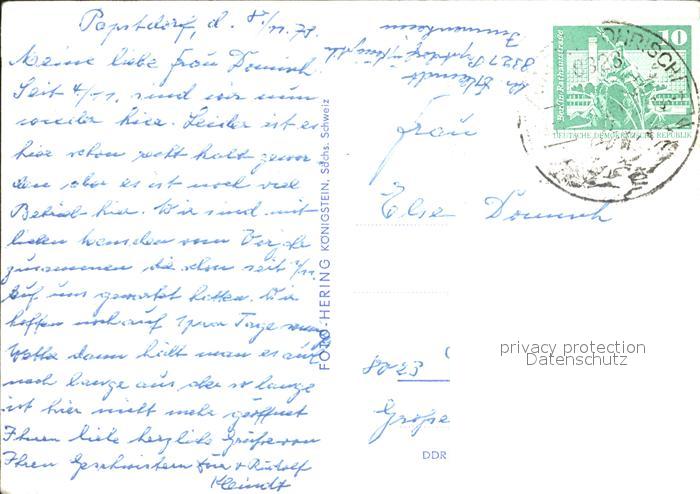 Papstdorf, d. 8./11.79.
Meine liebe Frau Domisch.
Seit 4/11. sind wir nun
wieder hier. Leider ist es
hier schon recht kalt gewor
den aber es ist noch viel
Betrieb hier. Wir sind mit
lieben vom Vorjahr
zusammen die schon seit
auf uns gewartet hatten. Wir
hoffen noch auf paar Tage
Wetter dann hält man es auch
noch lange aus aber so lange
ist hier nicht mehr geöffnet
Ihnen liebe herzliche Grüße von
Ihren Geschwistern + Rudolf
Kleindt
FOTO-HERING KÖNIGSTEIN, Sächs. Schweiz
8321 Papstdorf
Berlin, Rathausstraße
10
DEUTSCHE DEMOKRATISCHE REPUBLIK
8323
Frau
Else Domisch
privacy protection
Datenschutz
8023
Große
DDR